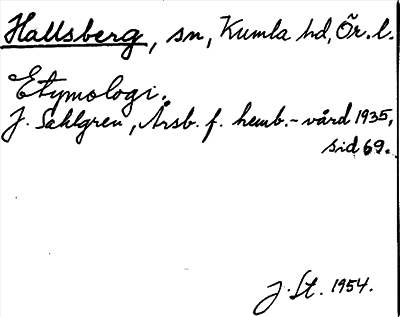 Hallsberg, sn, Kumla hd, Ör. l.
Etymologi.
J. Sahlgren, Årsb. f. hemb.-vård 1935,
sid 69.
J. St. 1954.